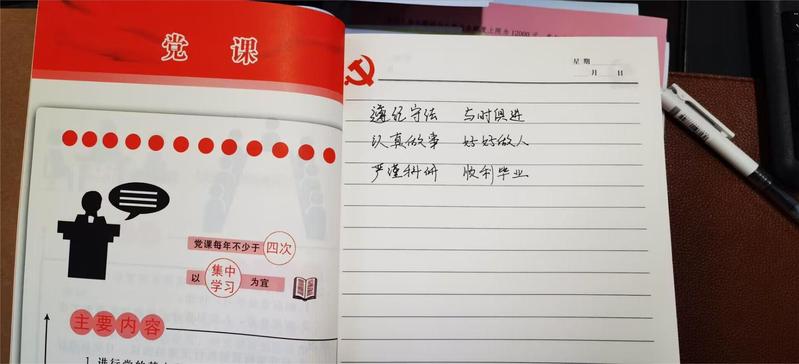 党 课
党课每年不少于 四次
以 集中学习 为宜
主要内容
星期
月 日
遵纪守法 与时俱进
认真做事 好好做人
严谨科研 顺利毕业